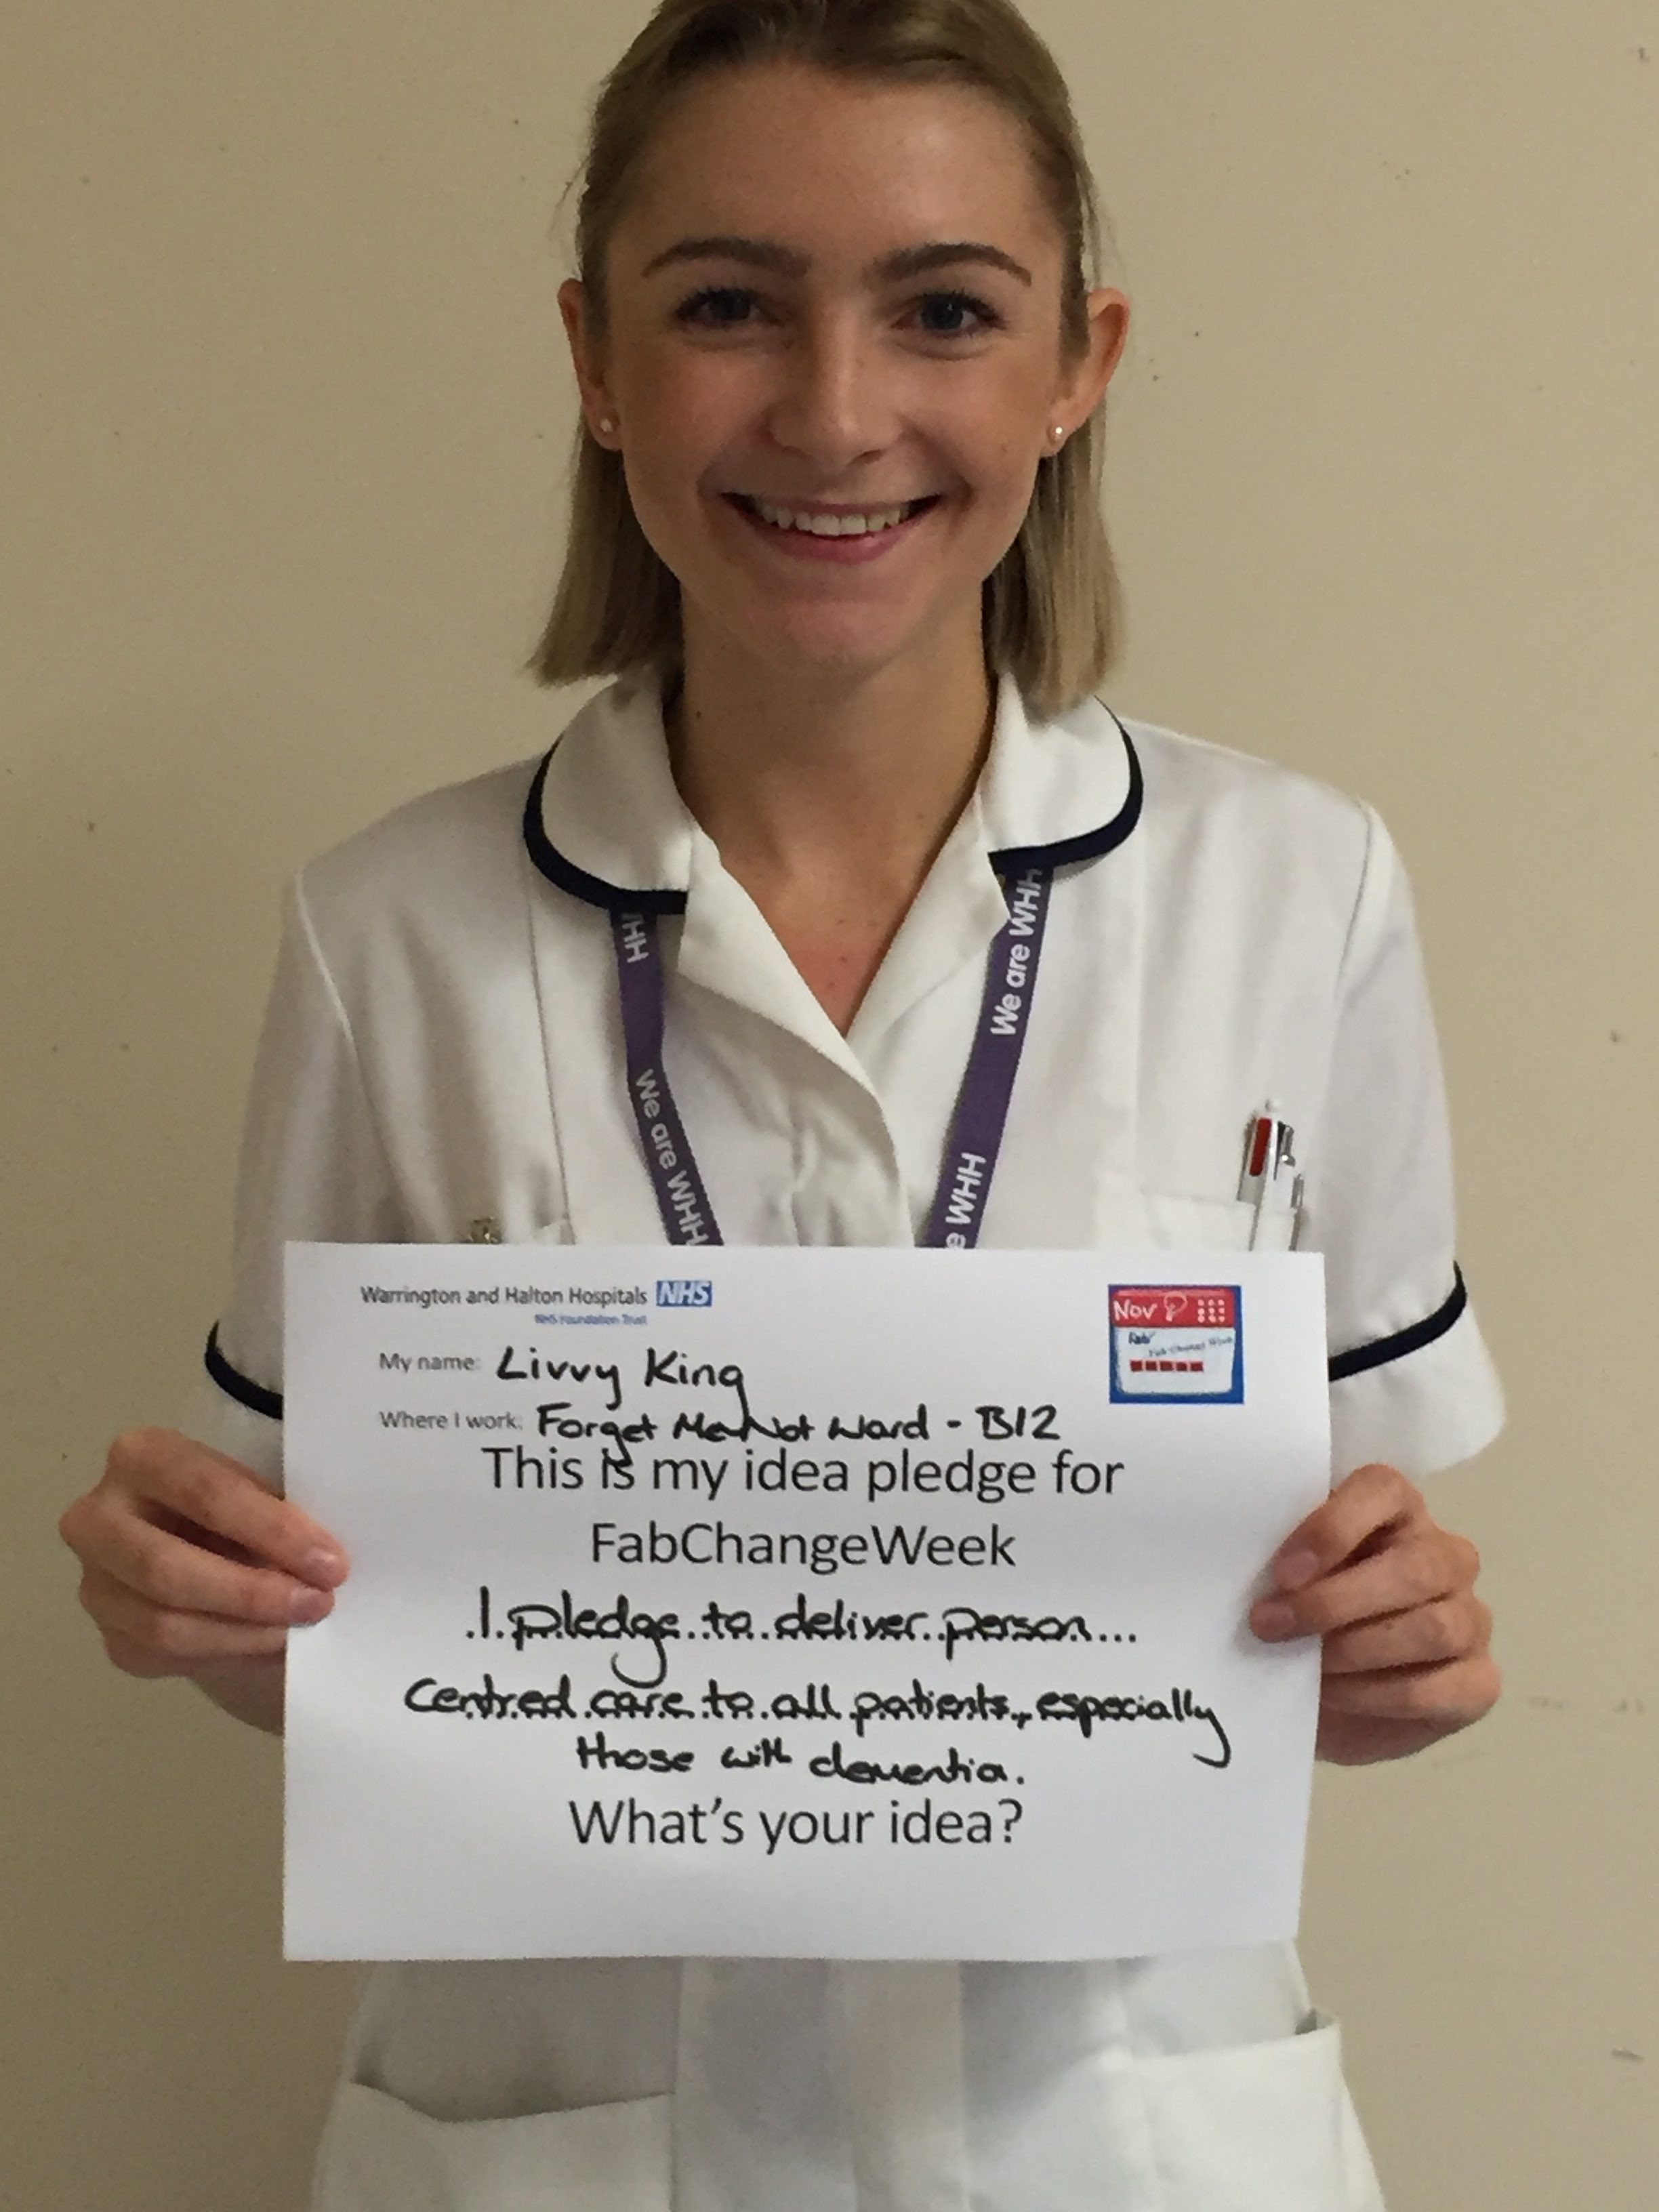 HH
We are WHH
We are WHH
e WHH
Warrington and Halton Hospitals NHS
NHS Foundation Trust
Nov
Fab Change Week
My name: Livvy King
Where I work: Forget Me Not Ward - B12
This is my idea pledge for
FabChangeWeek
I pledge to deliver person
Centred care to all patients, especially
those with dementia.
What's your idea?